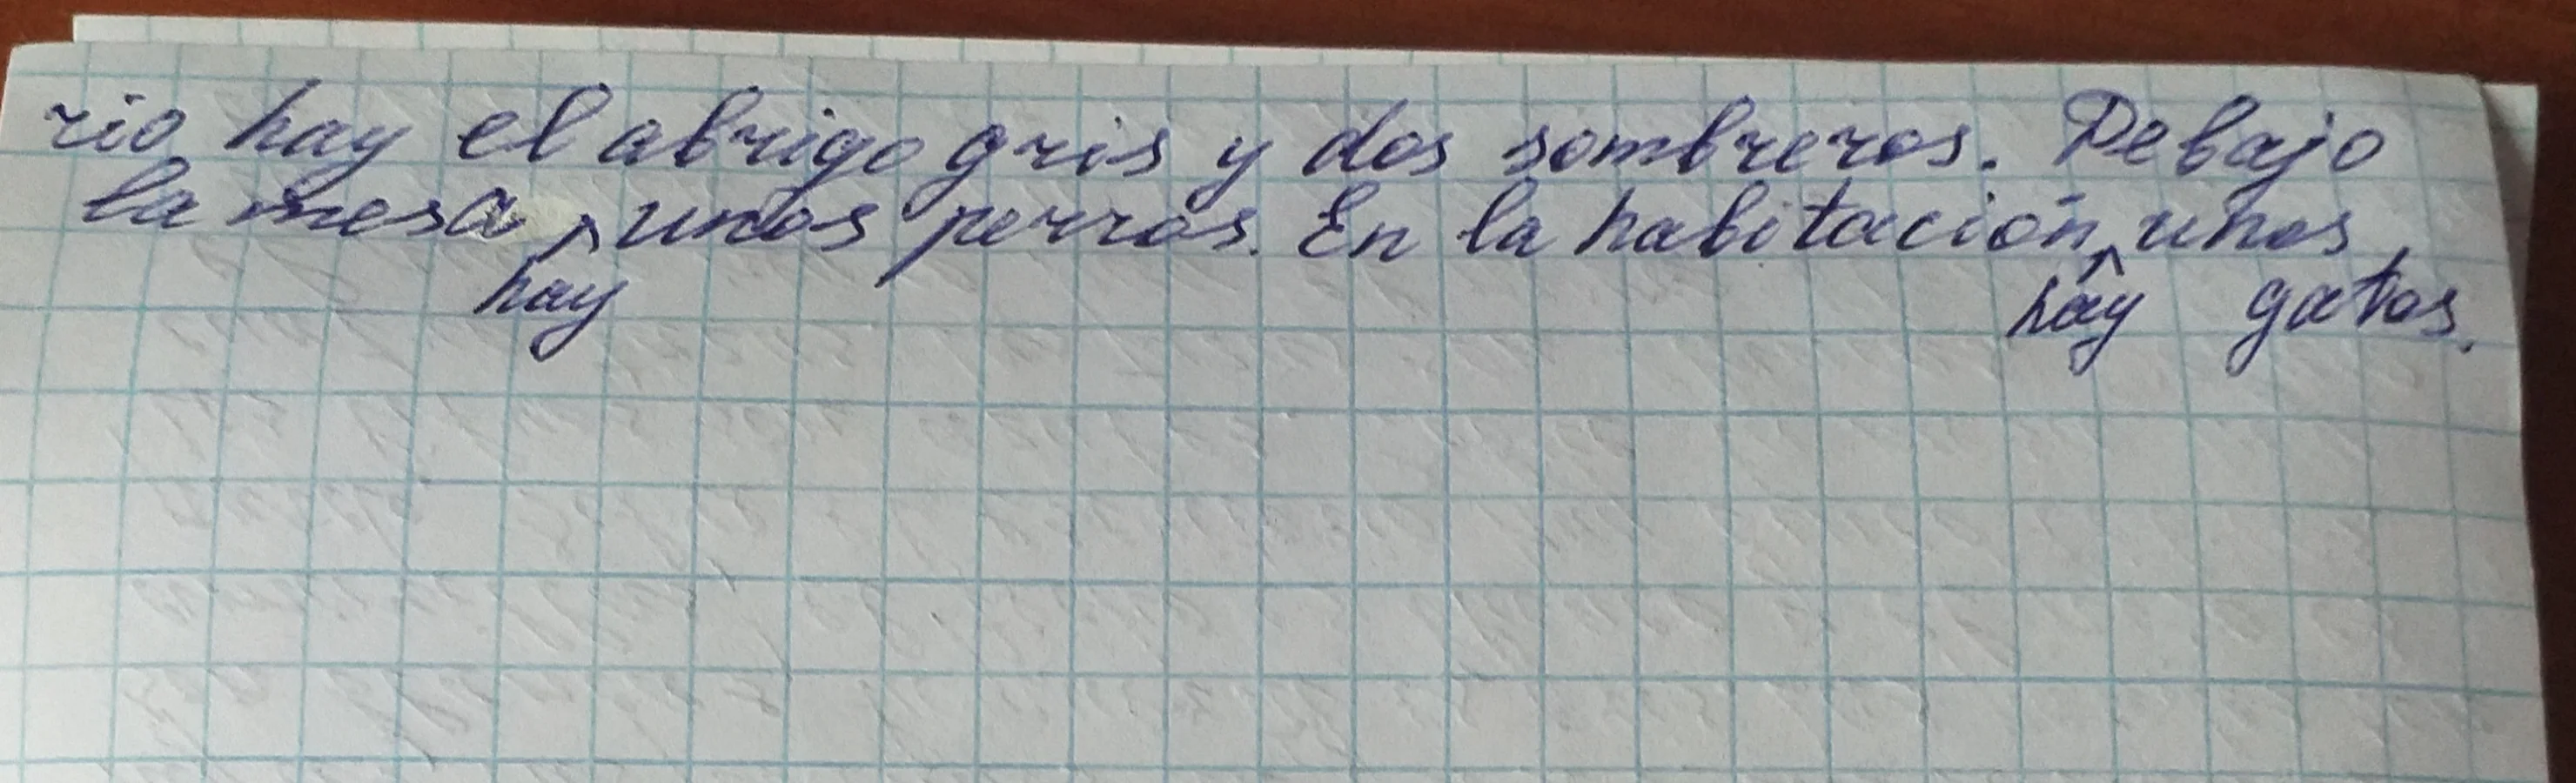 rio hay el abrigo gris y dos sombreros. Debajo
la mesa hay unos perros. En la habitación hay unos
gatos.